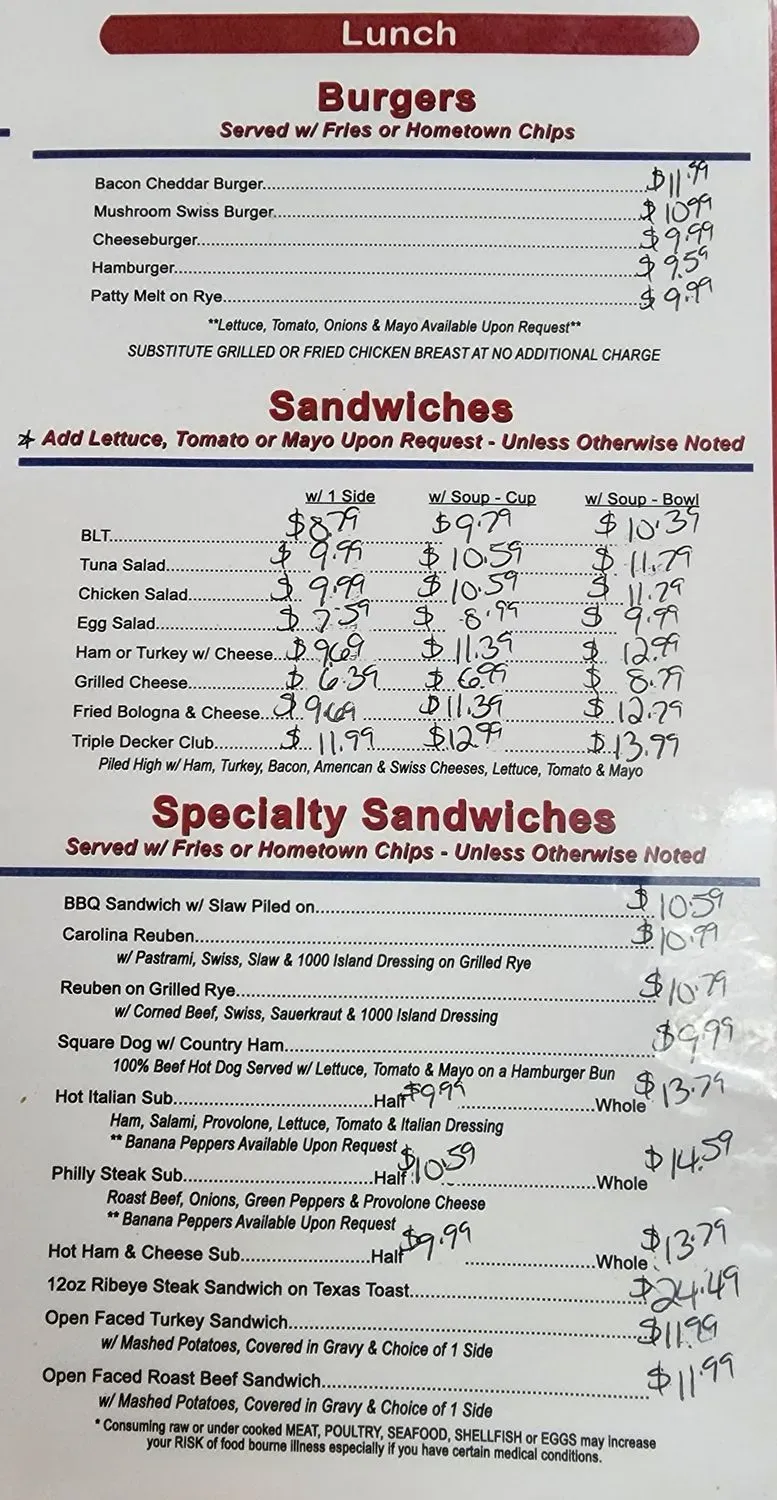 Lunch
Burgers
Served w/ Fries or Hometown Chips
Bacon Cheddar Burger........ $11.99
Mushroom Swiss Burger........ $10.99
Cheeseburger........ $9.99
Hamburger........ $9.59
Patty Melt on Rye........ $9.99
**Lettuce, Tomato, Onions & Mayo Available Upon Request**
SUBSTITUTE GRILLED OR FRIED CHICKEN BREAST AT NO ADDITIONAL CHARGE
Sandwiches
* Add Lettuce, Tomato or Mayo Upon Request - Unless Otherwise Noted
w/ 1 Side w/ Soup - Cup w/ Soup - Bowl
BLT........ $8.79 $9.79 $10.39
Tuna Salad........ $9.99 $10.59 $11.79
Chicken Salad........ $9.99 $10.59 $11.79
Egg Salad........ $7.59 $8.99 $9.99
Ham or Turkey w/ Cheese... $9.69 $11.39 $12.99
Grilled Cheese........ $6.39 $6.99 $8.79
Fried Bologna & Cheese... $9.69 $11.39 $12.79
Triple Decker Club........ $11.99 $12.99 $13.99
Piled High w/ Ham, Turkey, Bacon, American & Swiss Cheeses, Lettuce, Tomato & Mayo
Specialty Sandwiches
Served w/ Fries or Hometown Chips - Unless Otherwise Noted
BBQ Sandwich w/ Slaw Piled on........ $10.59
Carolina Reuben........ $10.99
w/ Pastrami, Swiss, Slaw & 1000 Island Dressing on Grilled Rye
Reuben on Grilled Rye........ $10.79
w/ Corned Beef, Swiss, Sauerkraut & 1000 Island Dressing
Square Dog w/ Country Ham........ $9.99
100% Beef Hot Dog Served w/ Lettuce, Tomato & Mayo on a Hamburger Bun
Hot Italian Sub........ Half $9.99 ........ Whole $13.79
Ham, Salami, Provolone, Lettuce, Tomato & Italian Dressing
** Banana Peppers Available Upon Request
Philly Steak Sub........ Half $10.59 ........ Whole $14.59
Roast Beef, Onions, Green Peppers & Provolone Cheese
** Banana Peppers Available Upon Request
Hot Ham & Cheese Sub........ Half $9.99 ........ Whole $13.79
12oz Ribeye Steak Sandwich on Texas Toast........ $24.49
Open Faced Turkey Sandwich........ $11.99
w/ Mashed Potatoes, Covered in Gravy & Choice of 1 Side
Open Faced Roast Beef Sandwich........ $11.99
w/ Mashed Potatoes, Covered in Gravy & Choice of 1 Side
* Consuming raw or under cooked MEAT, POULTRY, SEAFOOD, SHELLFISH or EGGS may increase
your RISK of food bourne illness especially if you have certain medical conditions.